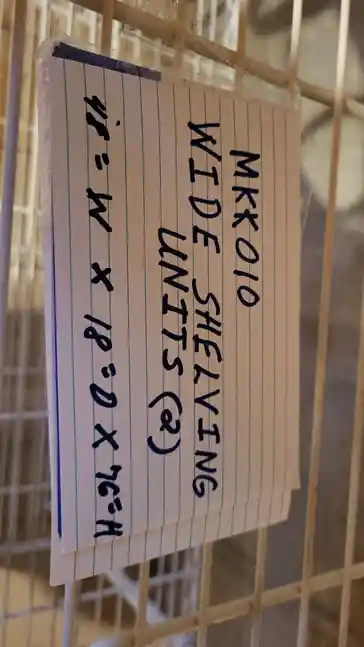 MKK010
WIDE SHELVING
UNITS (2)
48" W X 18" D X 76" H